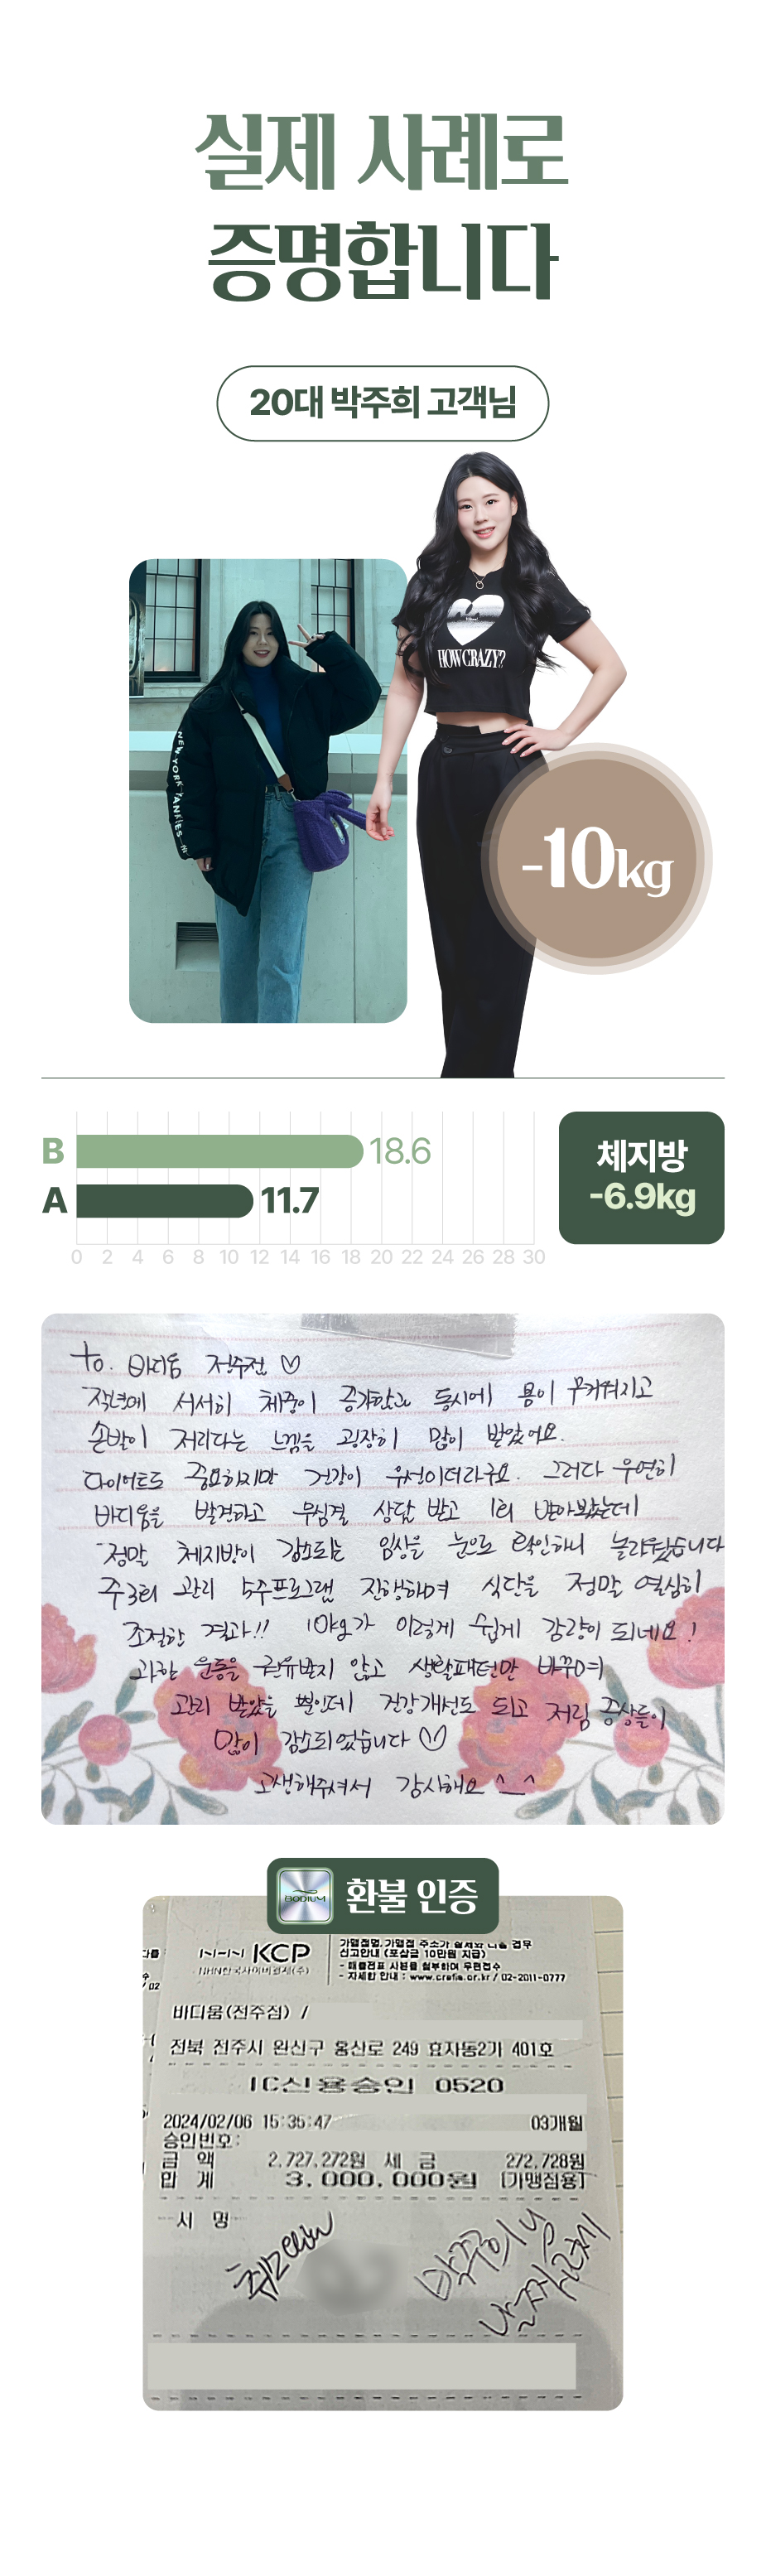 실제 사례로
증명합니다
20대 박주희 고객님
NEW YORK YANKEES
HOW CRAZY?
-10kg
B 18.6
A 11.7
0 2 4 6 8 10 12 14 16 18 20 22 24 26 28 30
체지방
-6.9kg
to. 바디움 전주점 ♡
작년에 서서히 체중이 증가함과 동시에 몸이 무거워지고
손발이 저리다는 느낌을 굉장히 많이 받았어요.
다이어트도 중요하지만 건강이 우선이더라구요. 그러다 우연히
바디움을 발견하고 무심결 상담 받고 1회 받아봤는데
정말 체지방이 감소되는 임상을 눈으로 확인하니 놀라웠습니다
주3회 관리 5주프로그램 진행하며 식단을 정말 열심히
조절한 결과!! 10kg가 이렇게 쉽게 감량이 되네요!
과한 운동을 권유받지 않고 생활패턴만 바꾸며
관리 받았을 뿐인데 건강개선도 되고 저림 증상들이
많이 감소되었습니다 ♡
고생해주셔서 감사해요 ^_^
BODIUM
환불 인증
KCP
NHN한국사이버결제(주)
가맹점명, 가맹점 주소가 실제와 다를 경우
신고안내 (포상금 10만원 지급)
- 매출전표 사본을 첨부하여 우편접수
- 자세한 안내 : www.crefia.or.kr / 02-2011-0777
바디움(전주점) /
전북 전주시 완산구 홍산로 249 효자동2가 401호
IC신용승인 0520
2024/02/06 15:35:47 03개월
승인번호:
금 액 2,727,272원 세 금 272,728원
합 계 3,000,000원 [가맹점용]
서 명
박주희님